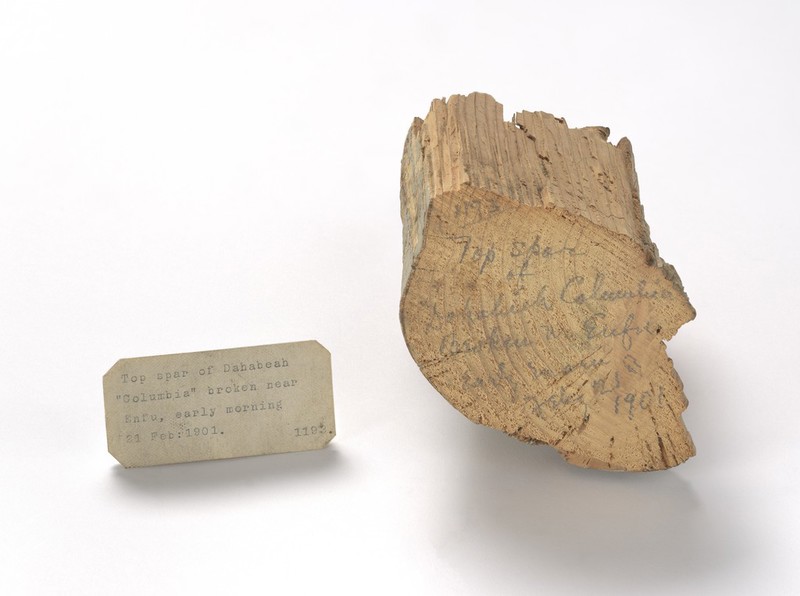 Top spar of Dahabeah
"Columbia" broken near
Enfu, early morning
21 Feb:1901. 1193.
1193
Top spar
of
Dahabeah Columbia
Broken Nr Enfu
early morn
1901